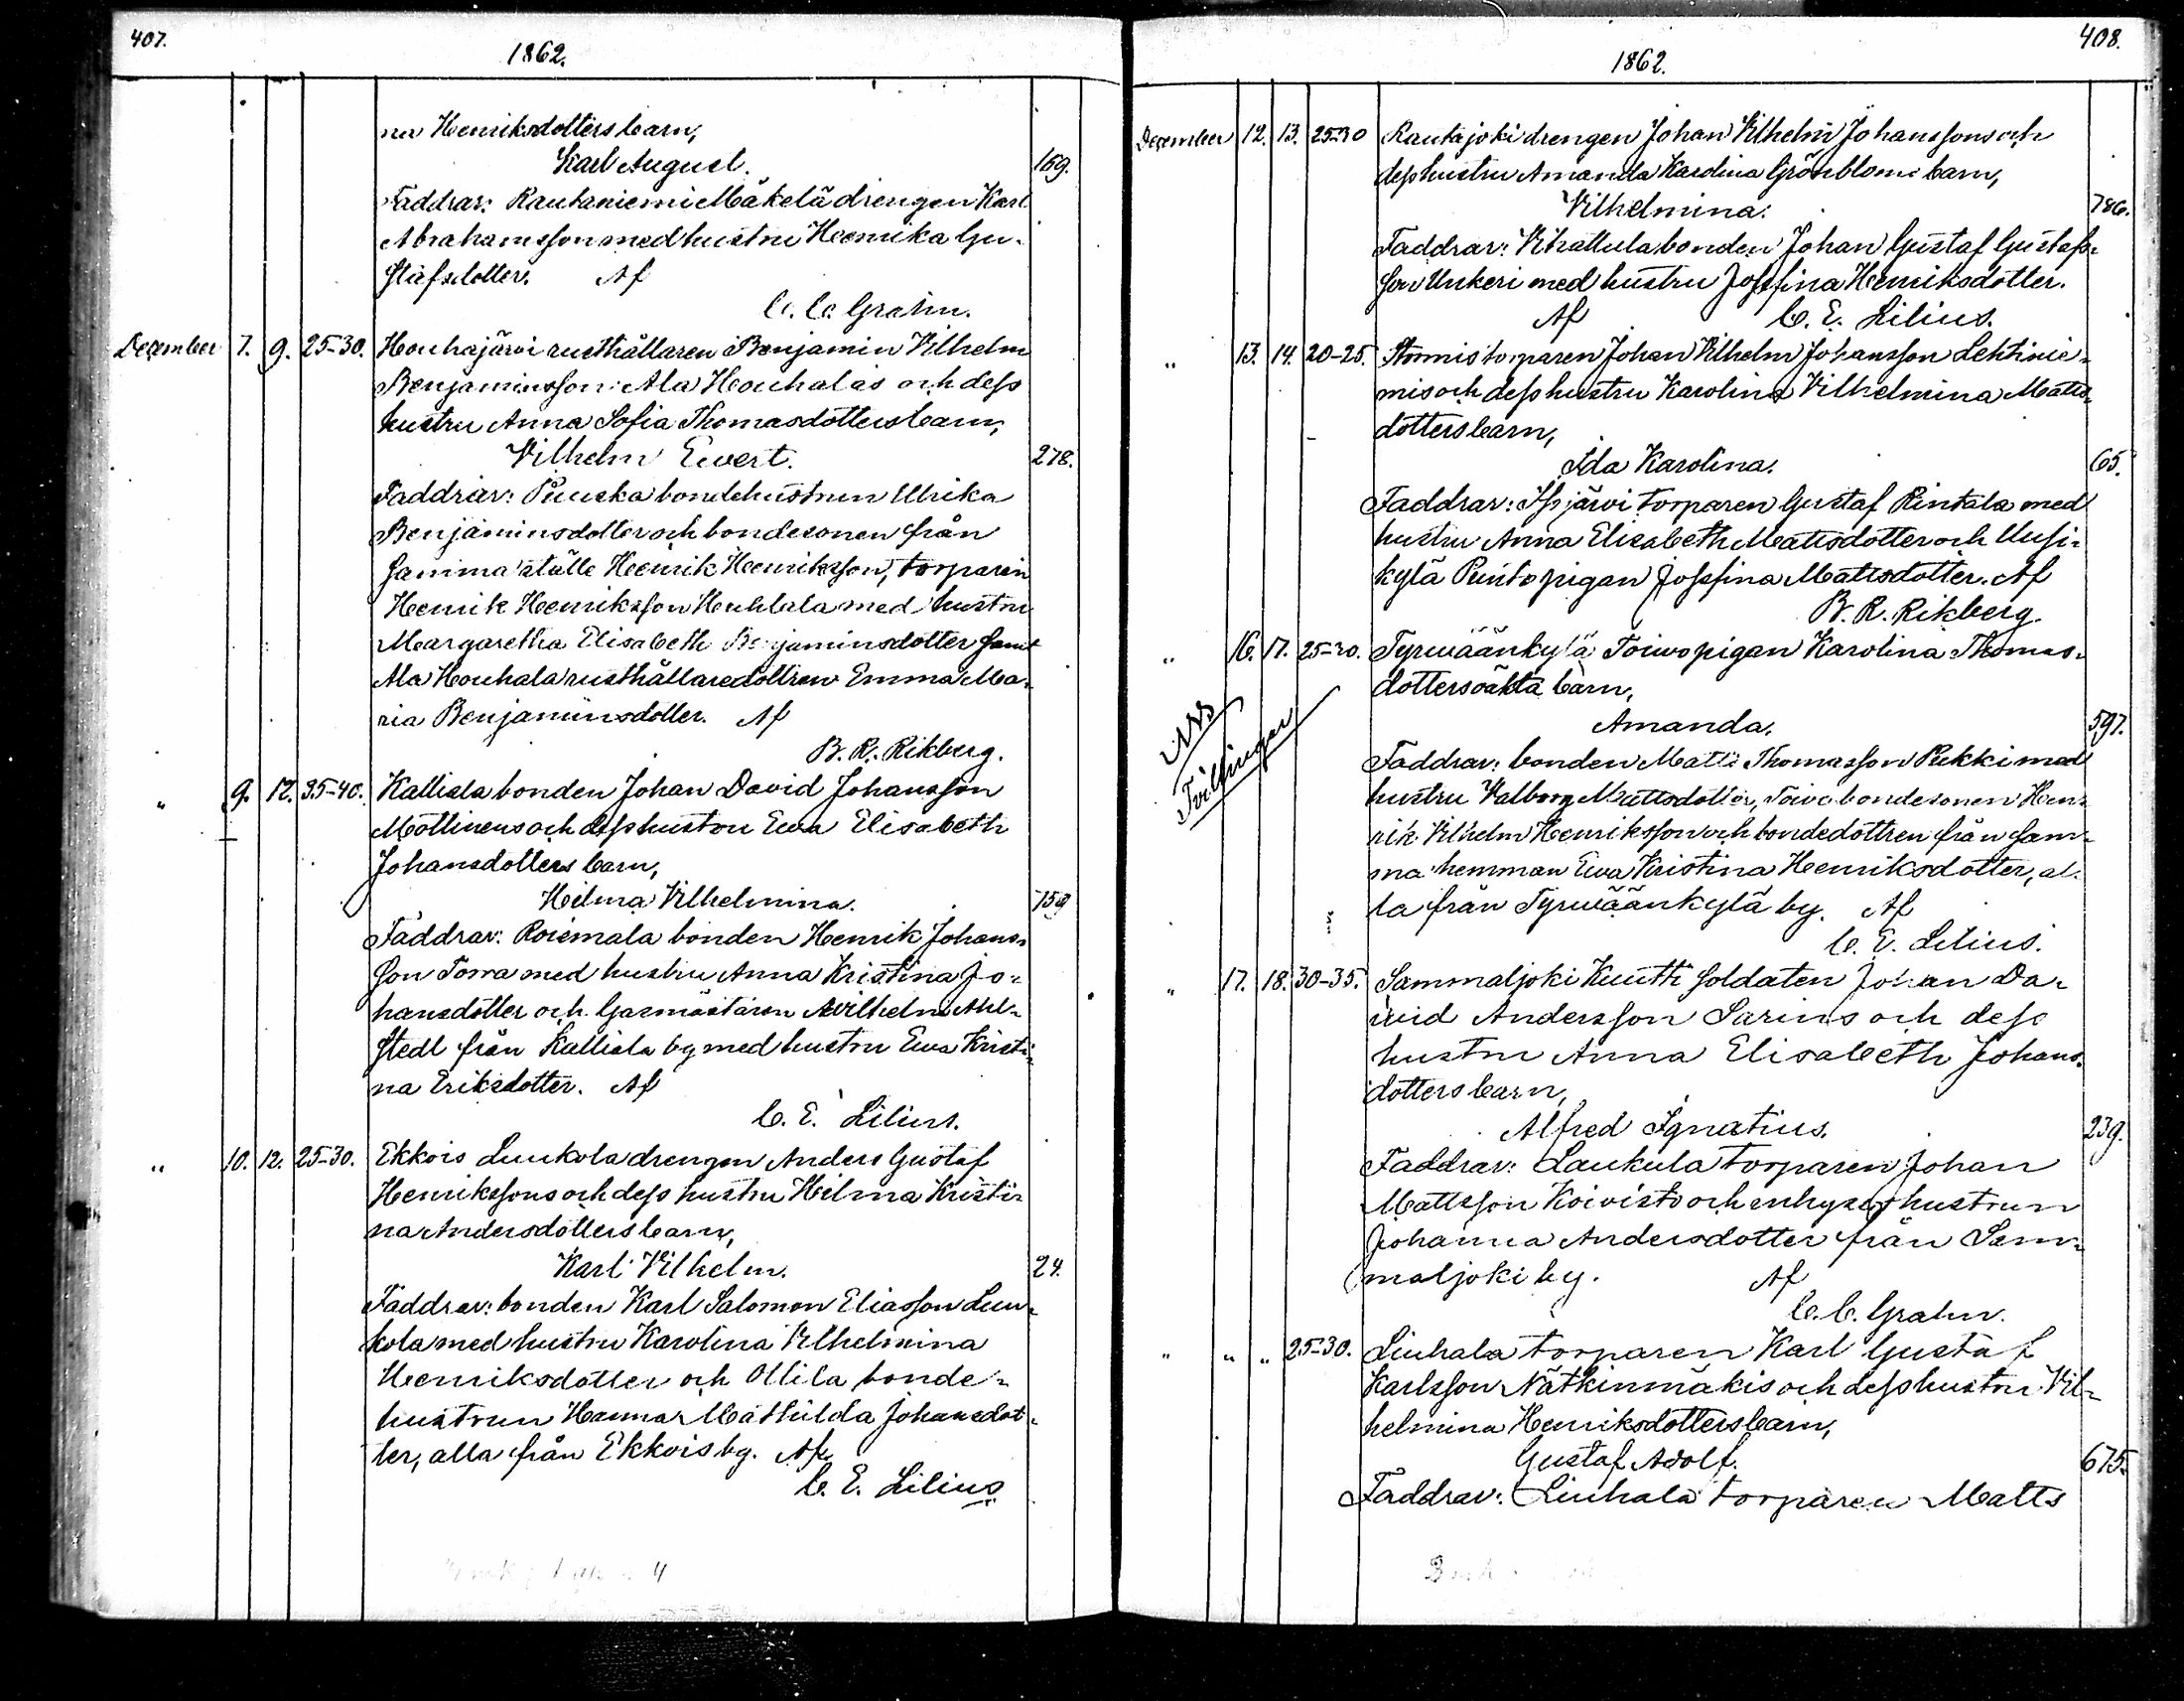 407.
1862.
na Henriksdotters barn,
Karl August. 169.
Faddrar: Rautaniemi Mäkelä drengen Karl
Abrahamsson med hustru Henrika Gu-
stafsdotter. Af
C. C. Grahn.
December 7. 9. 25-30. Houhajärvi rusthållaren Benjamin Vilhelm
Benjaminsson Ala Houhalas och dess
hustru Anna Sofia Thomasdotters barn,
Vilhelm Evert. 278.
Faddrar: Punska bondehustrun Ulrika
Benjaminsdotter och bondesonen från
samma ställe Henrik Henriksson, torparen
Henrik Henriksson med hustru
Margaretha Elisabeth Benjaminsdotter samt
Ala Houhala rusthållaredottren Emma Ma-
ria Benjaminsdotter. Af
B. R. Rikberg.
" 9. 12. 35-40. Kalliala bonden Johan David Johansson
Möttinens och dess hustru Eva Elisabeth
Johansdotters barn,
Hilma Vilhelmina. 159
Faddrar: Roismala bonden Henrik Johans-
son Torra med hustru Anna Kristina Jo-
hansdotter och Garmästaren Vilhelm Ahl-
stedt från Kalliala by med hustru Eva Kristi-
na Eriksdotter. Af
C. E. Lilius.
" 10. 12. 25-30. Ekkois Luukola drengen Anders Gustaf
Henrikssons och dess hustru Hilma Kristi-
na Andersdotters barn,
Karl Vilhelm. 24.
Faddrar: bonden Karl Salomon Eliasson Luu-
kola med hustru Karolina Vilhelmina
Henriksdotter och Ollila bonde-
hustrun Hanna Mathilda Johansdot-
ter, alla från Ekkois by. Af
C. E. Lilius
408.
1862.
December 12. 13. 25-30 Rautajoki drengen Johan Vilhelm Johanssons och
dess hustru Amanda Karolina Grönbloms barn,
Vilhelmina. 786.
Faddrar: Vihattula bonden Johan Gustaf Gustafs-
son Unkeri med hustru Josefina Henriksdotter.
Af C. E. Lilius.
" 13. 14. 20-25. Stormis torparen Johan Vilhelm Johansson Lehtinie-
mis och dess hustru Karolina Vilhelmina Matts-
dotters barn,
Ida Karolina. 65.
Faddrar: Issjärvi torparen Gustaf Rintala med
hustru Anna Elisabeth Mattsdotter och Uusi-
kylä Punto pigan Josefina Mattsdotter. Af
B. R. Rikberg.
" 16. 17. 25-30. Tyrväänkylä Toivo pigan Karolina Thomas-
dotters oäkta barn,
Amanda. 597.
NB
Tvillingar
Faddrar: bonden Matts Thomasson Pukki med
hustru Valborg Mattsdotter, Toivo bondesonen Hen-
rik Vilhelm Henriksson och bondedottren från sam-
ma hemman Eva Kristina Henriksdotter, al-
la från Tyrväänkylä by. Af
C. E. Lilius.
" 17. 18. 30-35. Sammaljoki Knuuti soldaten Johan Da-
vid Andersson Sarins och dess
hustru Anna Elisabeth Johans-
dotters barn,
Alfred Ignatius. 239.
Faddrar: Laukula torparen Johan
Mattsson Koivisto och inhyses hustrun
Johanna Andersdotter från Sam-
maljoki by. Af
C. C. Grahn.
" " " 25-30. Liuhala torparen Karl Gustaf
Karlsson Nätkinmäkis och dess hustru Vil-
helmina Henriksdotters barn,
Gustaf Adolf. 675.
Faddrar: Liuhala torparen Matts